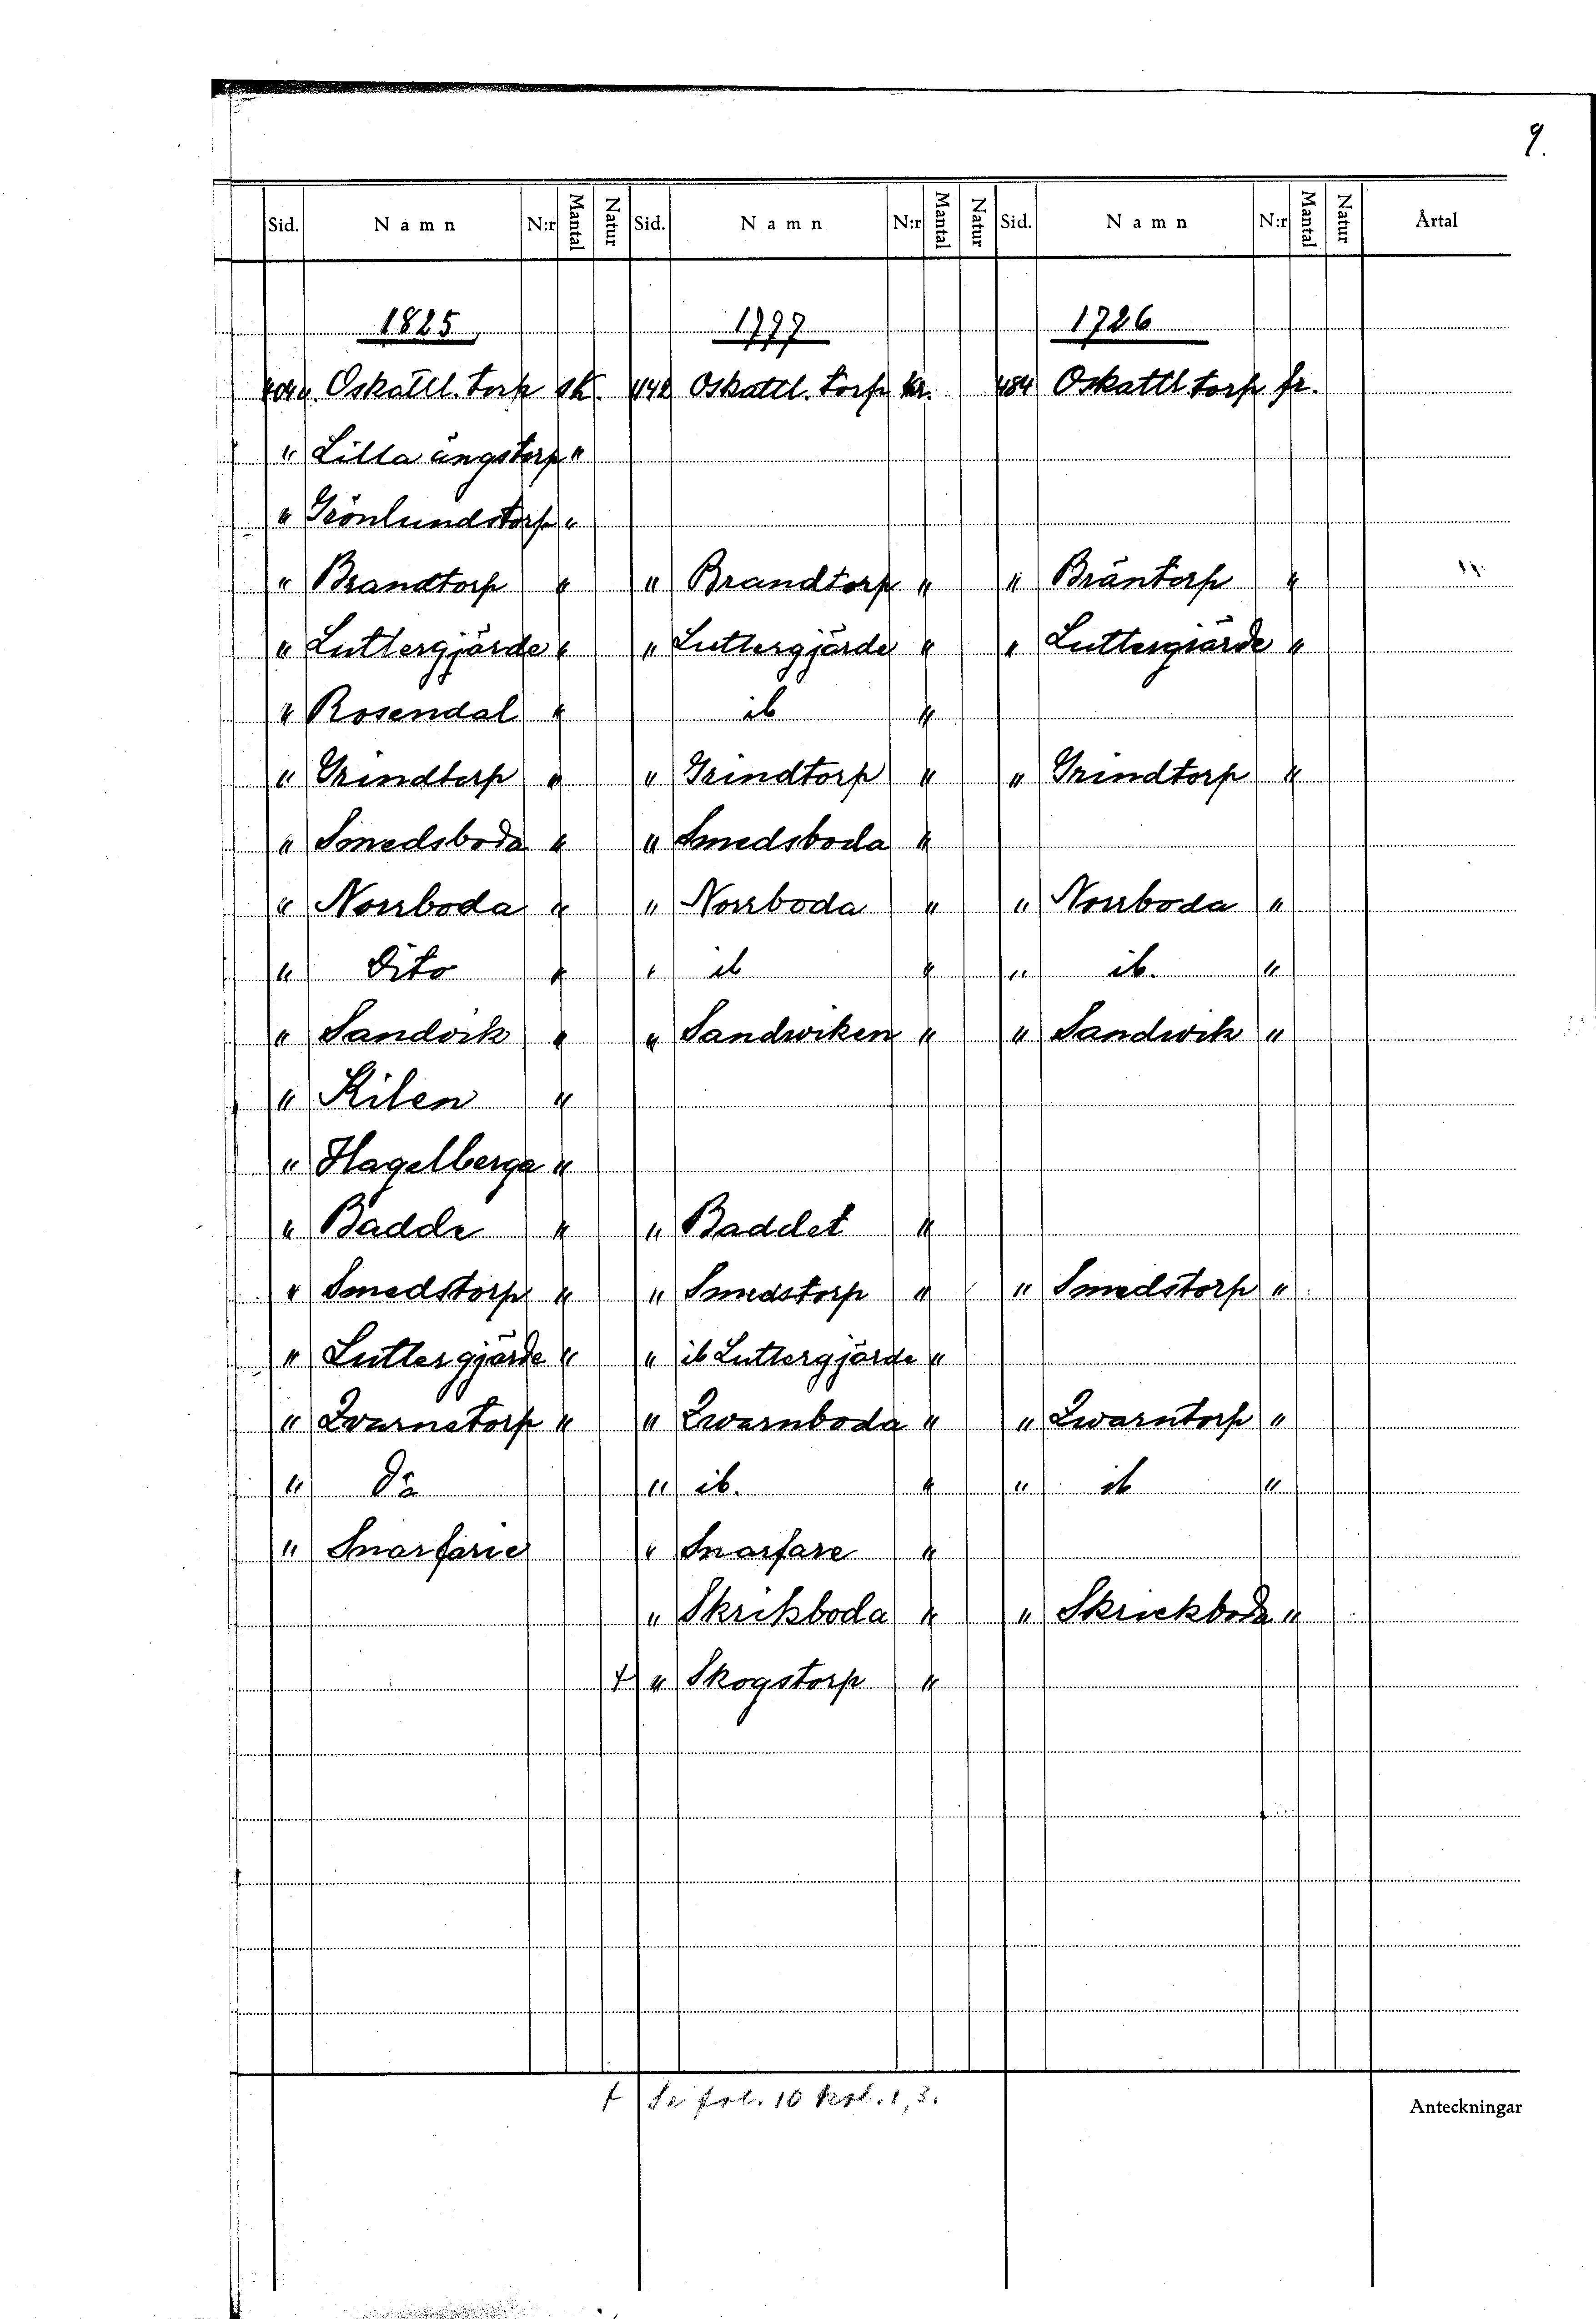 9.
Sid. Namn N:r Mantal Natur Sid. Namn N:r Mantal Natur Sid. Namn N:r Mantal Natur Årtal
1825 1797 1726
Oskattl. torp sk. 442 Oskattl. torp kr. 484 Oskattl torp fr.
" Lilla ängstorp "
" Grönlundstorp "
" Brandtorp " " Brandtorp " " Bräntorp "
" Luttergjärde " " Luttergjärde " " Luttergiärde "
" Rosendal " ib "
" Grindtorp " " Grindtorp " " Grindtorp "
" Smedsboda " " Smedsboda "
" Norrboda " " Norrboda " " Norrboda "
" Dito " " ib " " ib. "
" Sandvik " " Sandwiken " " Sandwik "
" Kilen "
" Hagelberga "
" Badde " " Baddet "
" Smedstorp " " Smedstorp " " Smedstorp "
" Luttergjärde " " ib Luttergjärde "
" Qvarnstorp " " Qwarnboda " " Qwarntorp "
" Do " ib. " " ib "
" Snarfarie " Snarfare "
" Skrikboda " " Skrickboda "
† " Skogstorp "
† Se fol. 10 kol. 1, 3.
Anteckningar